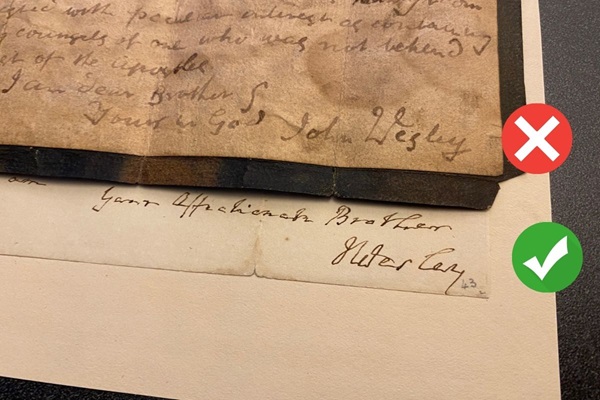 with peculiar interest as containing
counsels of one who was not behend
of the Apostles
I am Dear Brother
Yours in God John Wesley
Your Affectionate Brother
JWesley
43